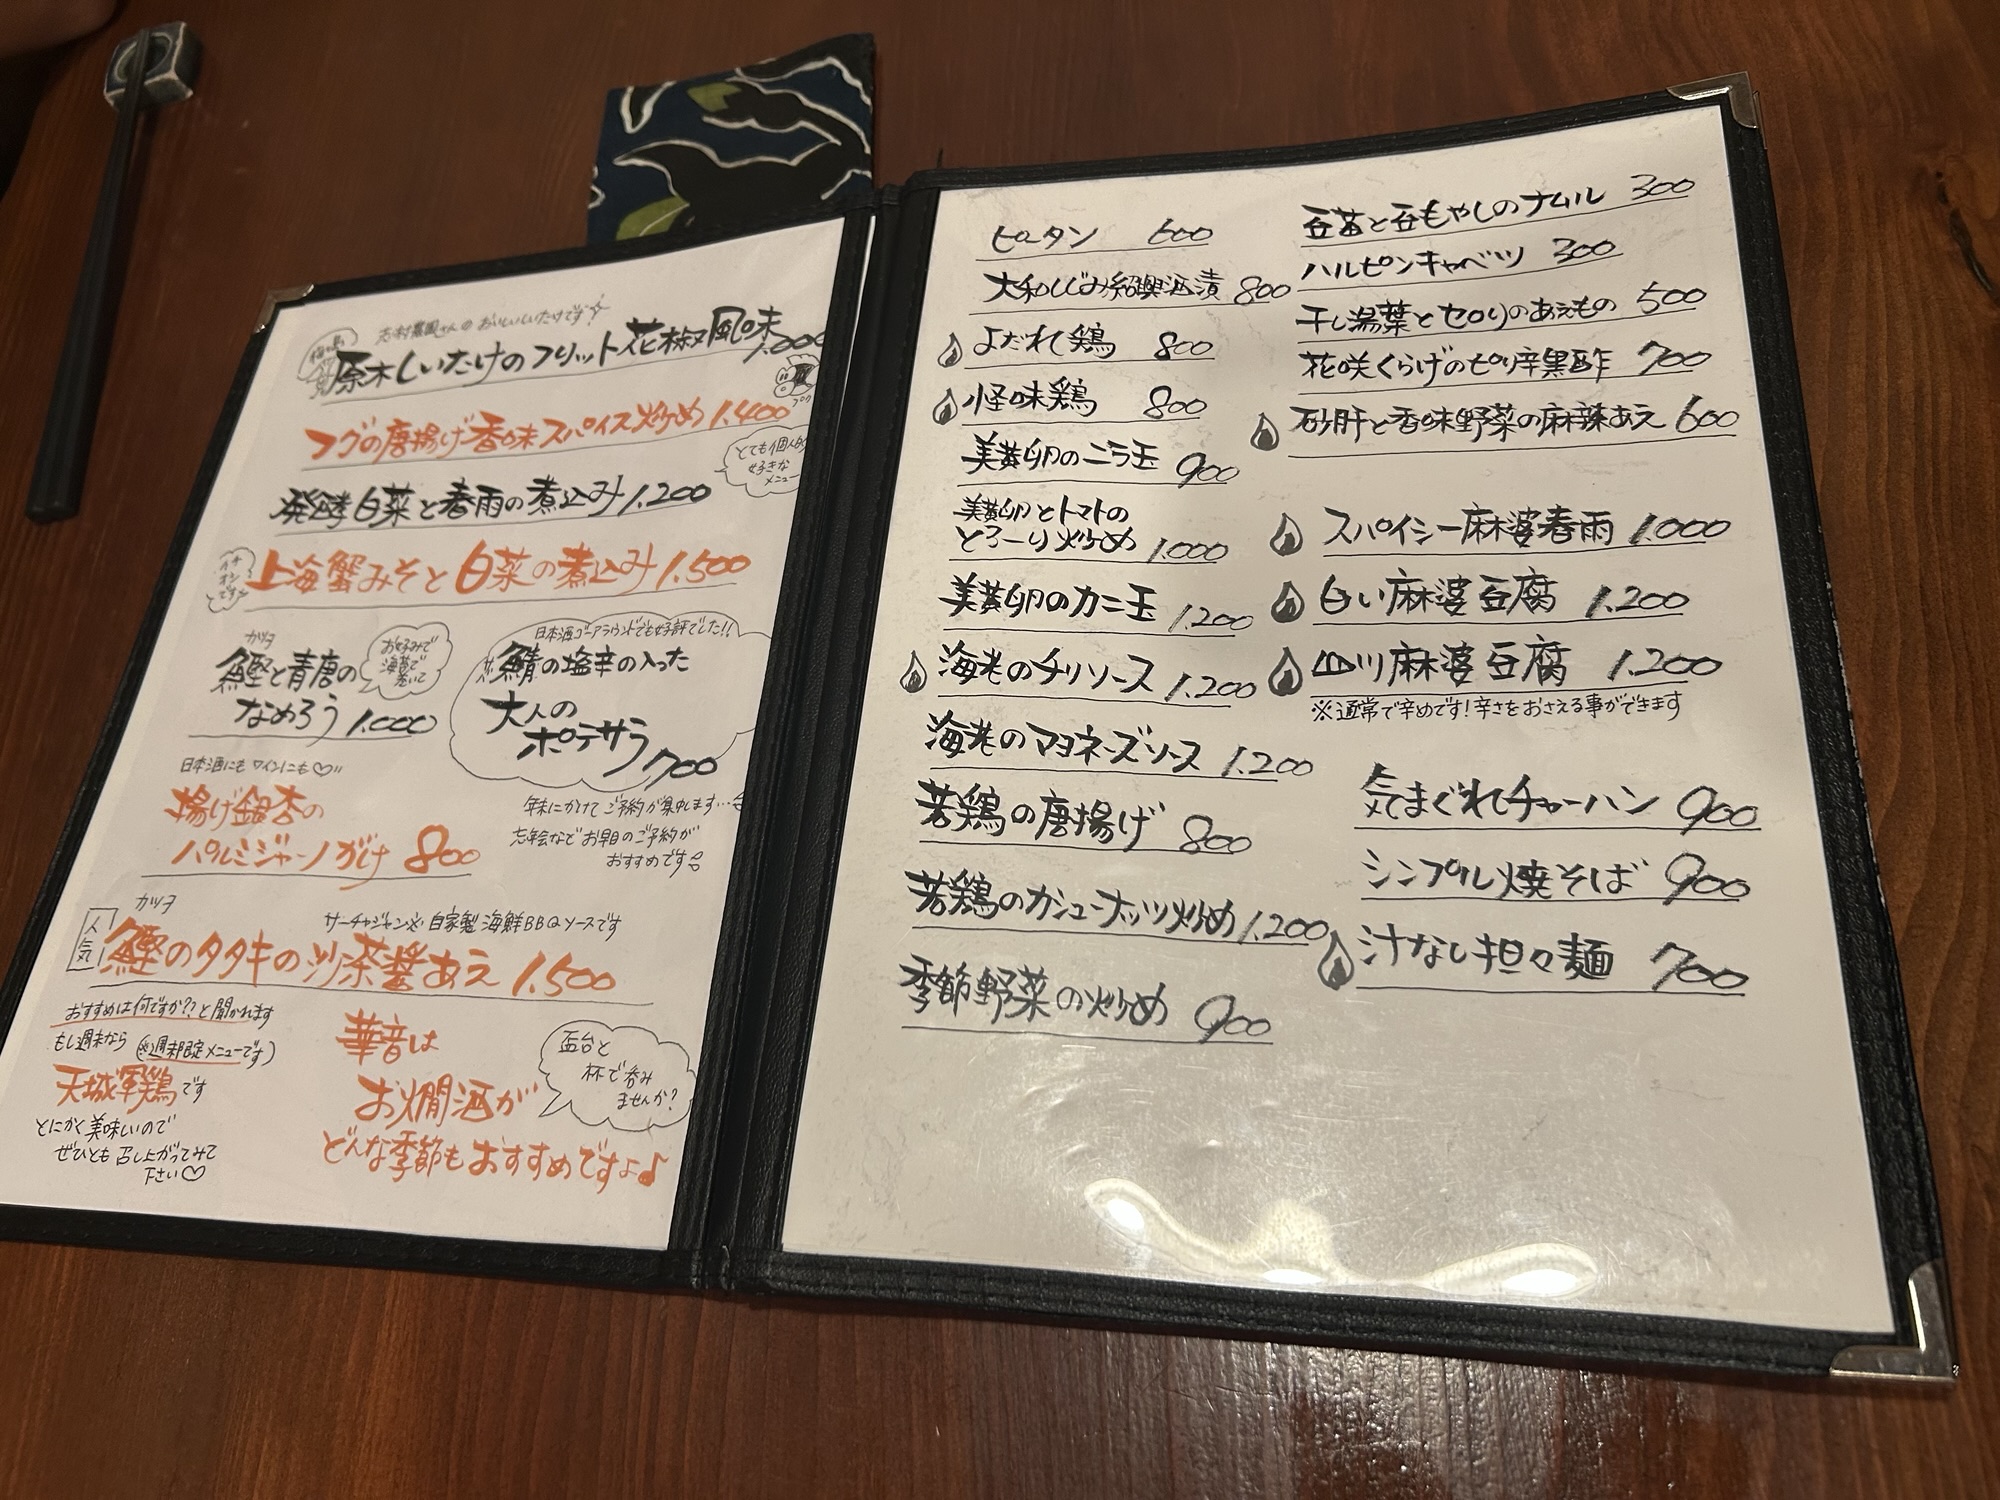 志村農園さんのおいしいしいたけです
原木しいたけのフリット花椒風味 1.000
フグの唐揚げ香味スパイス炒め 1.400
フグ
とても個人的
好きな
メニュー
発酵白菜と春雨の煮込み 1.200
イチ
オシ
です
上海蟹みそと白菜の煮込み 1.500
カツヲ
鰹と青唐の
なめろう 1.000
お好みで
海苔で
巻いて
日本酒ゴーアラウンドでも好評でした!!
鯖の塩辛の入った
大人の
ポテサラ 700
日本酒にもワインにも♡
揚げ銀杏の
パルミジャーノがけ 800
年末にかけてご予約が集中します…
忘年会などお早目のご予約が
おすすめです
人気
カツヲ
サーチャジャン※自家製海鮮BBQソースです
鰹のタタキの沙茶醤あえ 1.500
おすすめは何ですか??と聞かれます
もし週末なら(※週末限定メニューです)
天城軍鶏です
とにかく美味しいので
ぜひとも召し上がってみて
下さい♡
華音は
お燗酒が
どんな季節もおすすめですよ♪
盃台と
杯で呑み
ませんか?
ピータン 600
大和しじみ紹興酒漬 800
よだれ鶏 800
怪味鶏 800
美黄卵のニラ玉 900
美黄卵とトマトの
とろーり炒め 1.000
美黄卵のカニ玉 1.200
海老のチリソース 1.200
海老のマヨネーズソース 1.200
若鶏の唐揚げ 800
若鶏のカシューナッツ炒め 1.200
季節野菜の炒め 900
豆苗と豆もやしのナムル 300
ハルピンキャベツ 300
干し湯葉とセロリのあえもの 500
花咲くらげのピリ辛黒酢 700
砂肝と香味野菜の麻辣あえ 600
スパイシー麻婆春雨 1.000
白い麻婆豆腐 1.200
四川麻婆豆腐 1.200
※通常で辛めです!辛さをおさえる事ができます
気まぐれチャーハン 900
シンプル焼そば 900
汁なし担々麺 700